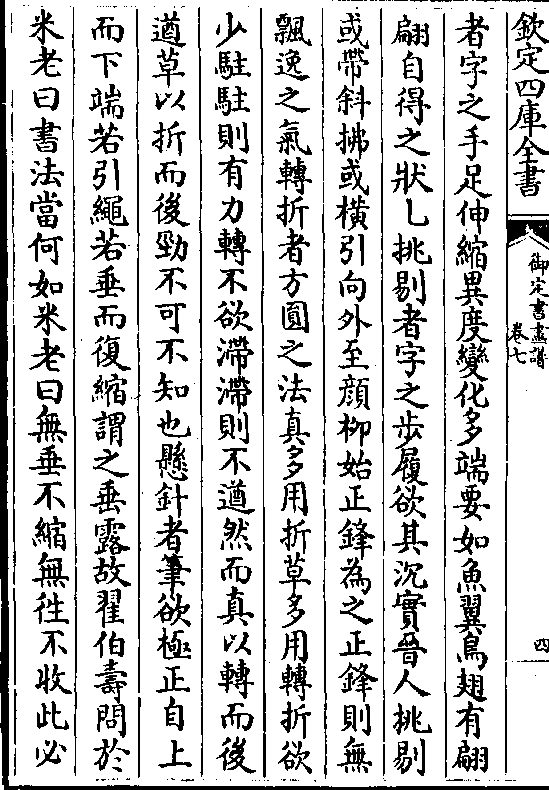 欽定四庫全書
御定書畫譜
卷七
四
者字之手足伸縮異度變化多端要如魚翼鳥翅有翩
翩自得之狀乚挑剔者字之步履欲其沉實晉人挑剔
或帶斜拂或橫引向外至顔柳始正鋒為之正鋒則無
飄逸之氣轉折者方圓之法真多用折草多用轉折欲
少駐駐則有力轉不欲滯滯則不遒然而真以轉而後
遒草以折而後勁不可不知也懸針者筆欲極正自上
而下端若引繩若垂而復縮謂之垂露故翟伯壽問於
米老曰書法當何如米老曰無垂不縮無徃不收此必